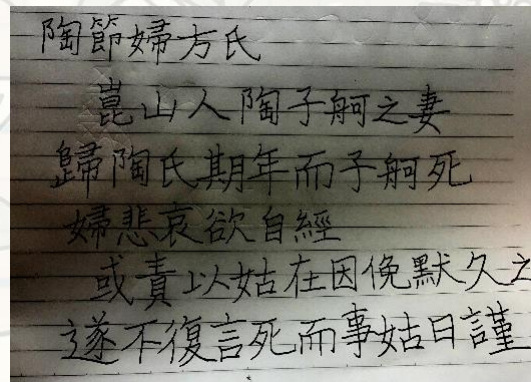 陶節婦方氏
崑山人陶子舸之妻
歸陶氏期年而子舸死
婦悲哀欲自經
或責以姑在因俛默久之
遂不復言死而事姑日謹